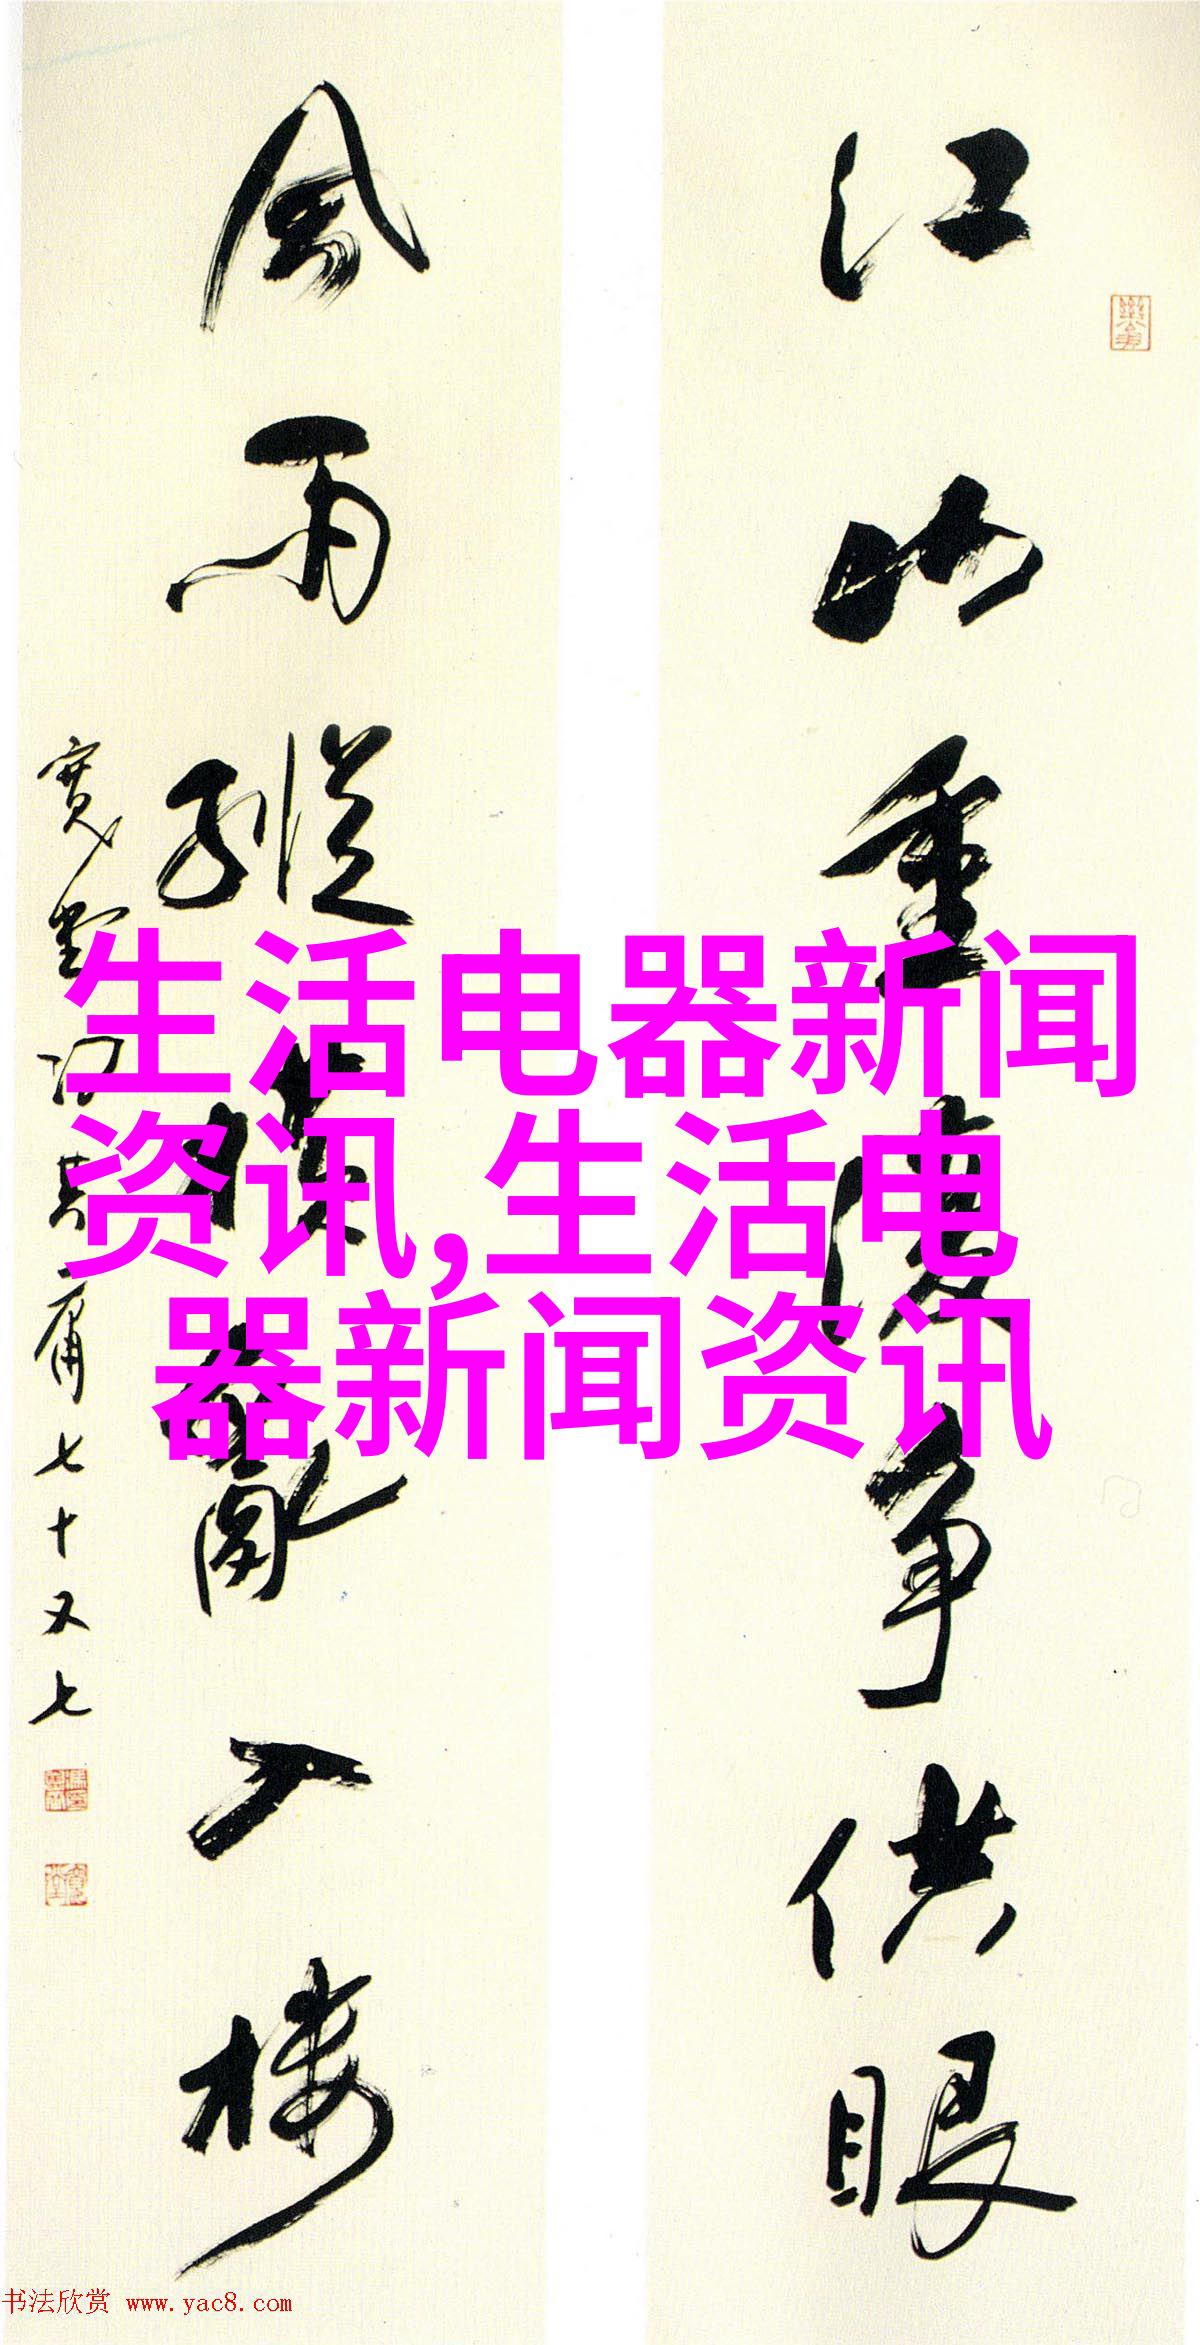 江山重复争供眼
风雨纵横乱入楼
宽堂冯其庸七十又七
生活电器新闻
资讯,生活电
器新闻资讯
书法欣赏 www.yac8.com